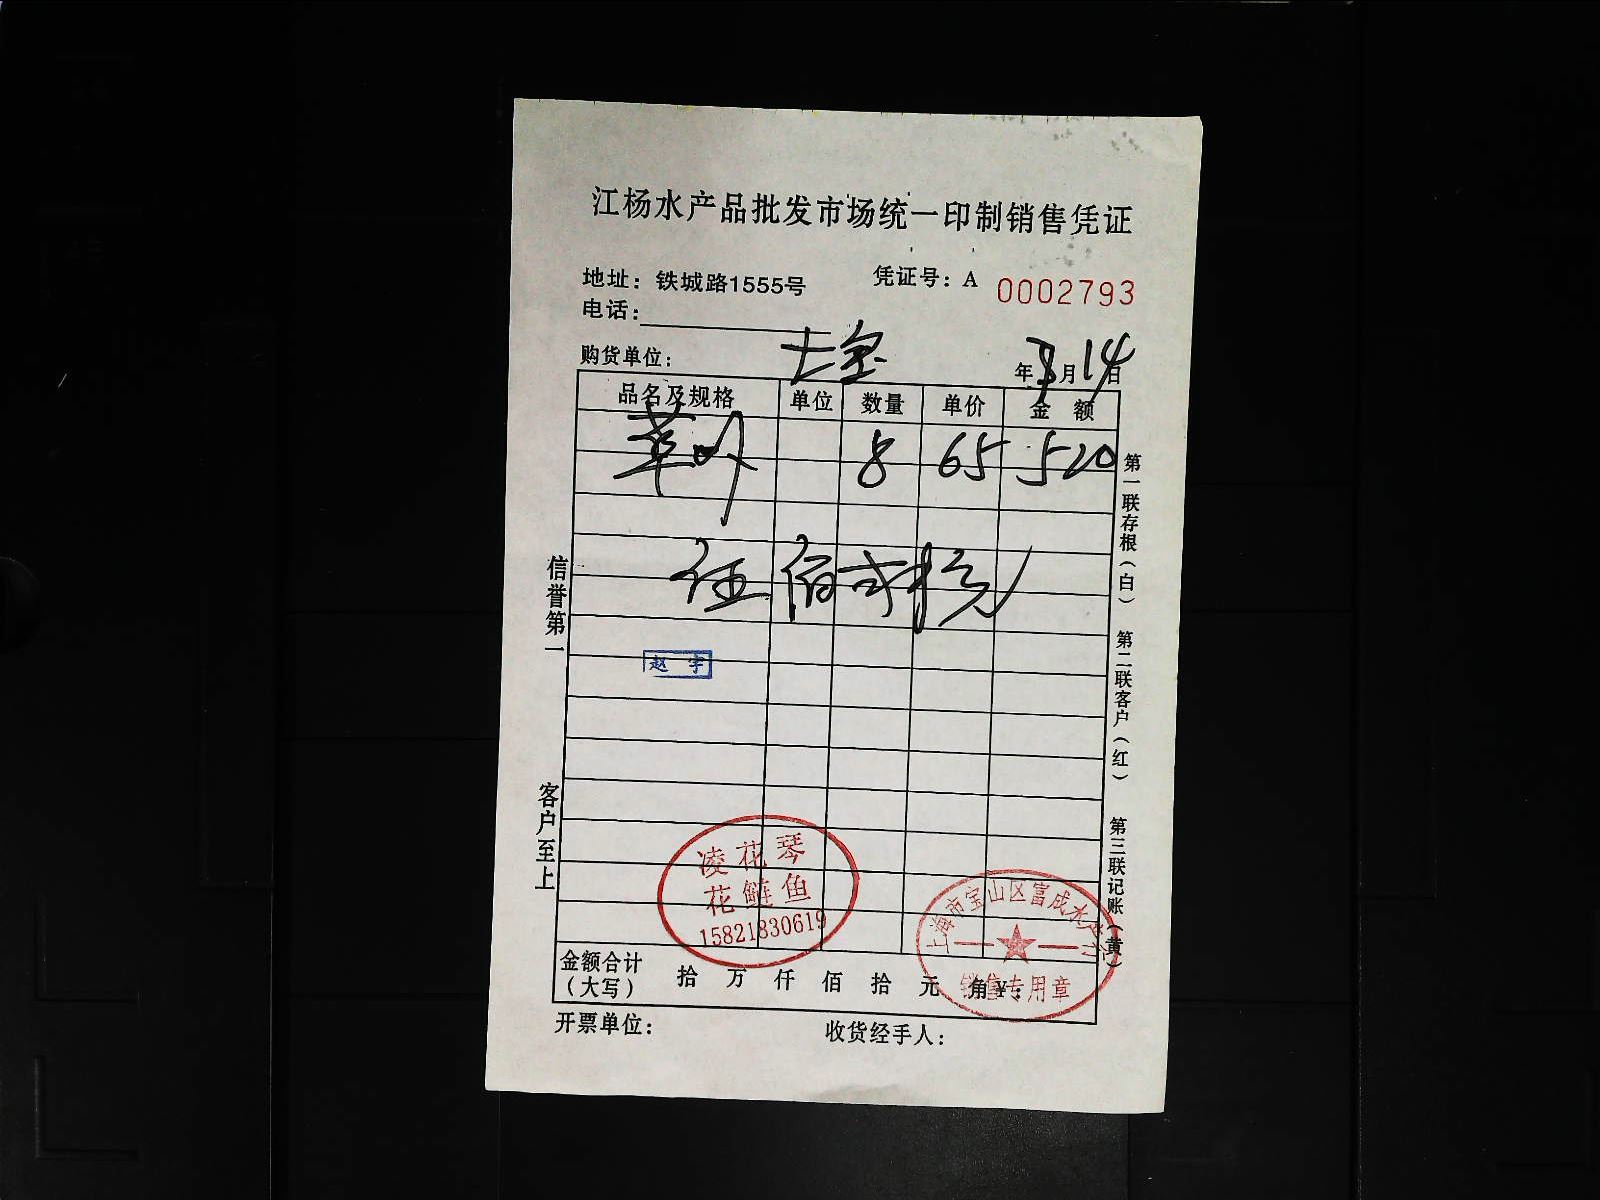 江杨水产品批发市场统一印制销售凭证
地址：铁城路1555号 凭证号：A 0002793
电话：
购货单位： 七宝 年 月14日
品名及规格 单位 数量 单价 金额
8 65 520
伍佰贰拾元
赵宇
信誉第一
客户至上
第一联存根（白）
第二联客户（红）
第三联记账（黄）
凌花琴
花鲢鱼
15821830619
上海市宝山区富成水产行
销售专用章
金额合计（大写） 拾 万 仟 佰 拾 元 角 ¥：
开票单位： 收货经手人：